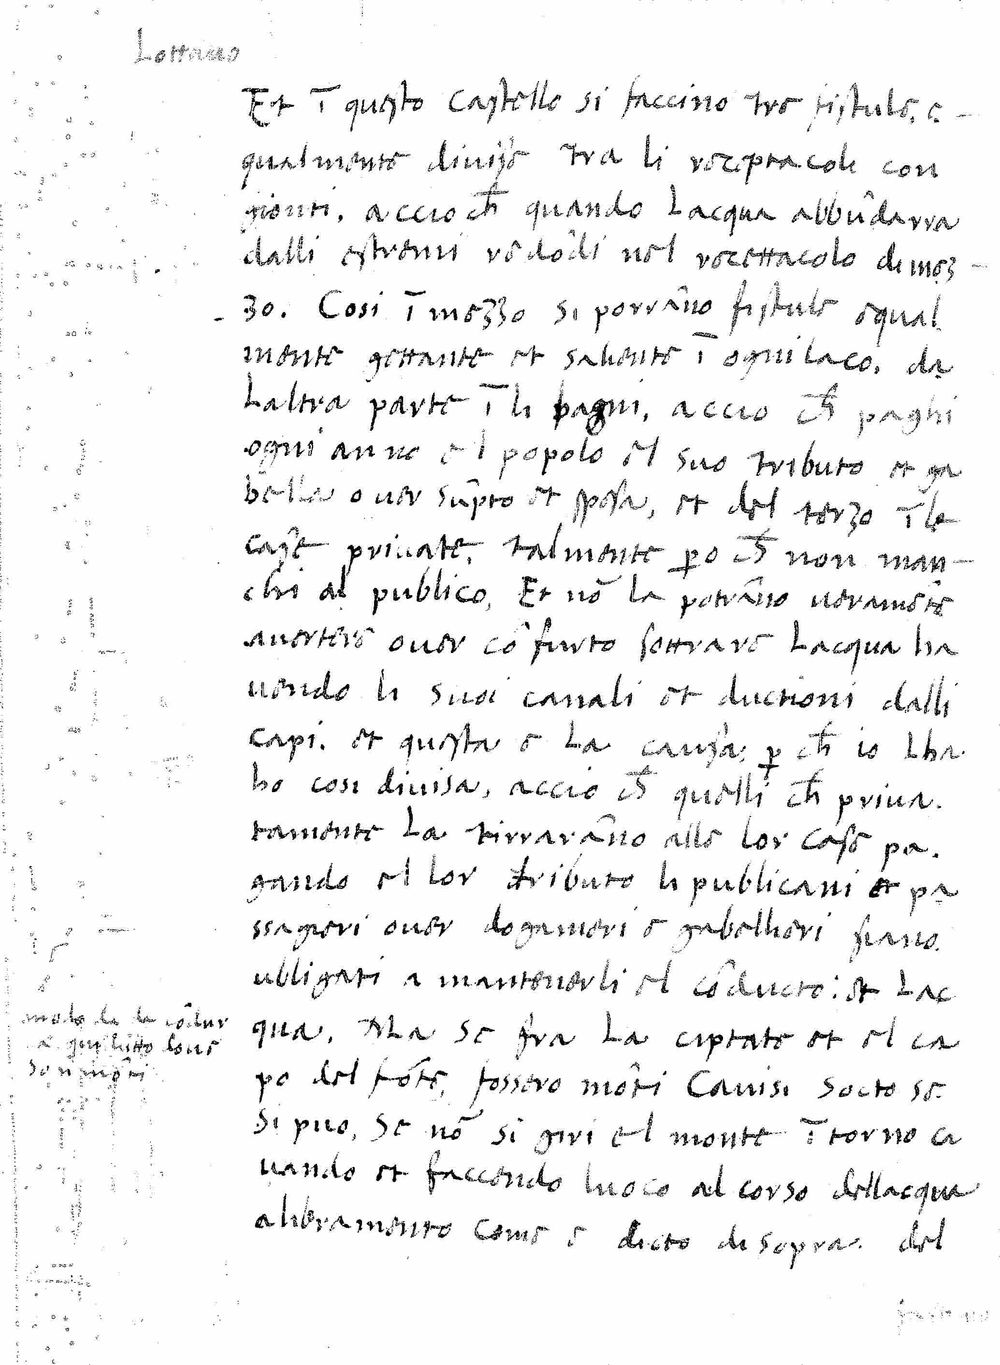 Lottauo
Et ī questo Castello si faccino tre fistule, e-
qualmente diuise tra li receptacoli con
gionti, accioch̄ quando Lacqua abbūdarra
dalli estremi redōdi nel recettacolo di mez-
zo. Cosi ī mezzo si porrāno fistule equal
mente gettante et saliente ī ogni laco, da
Laltra parte ī li bagni, accio ch̄ paghi
ogni anno el popolo el suo tributo et ga
bella ouer sūpto et spesa, et del terzo ī le
case priuate, talmente ꝑo ch̄ non man-
chi al publico, Et nō la potrāno ueramēte
auertere ouer cō furto sottrare Lacqua ha
uendo li suoi canali et ductioni dalli
capi. et questa e La causa, ꝑ ch̄ io Lha
ho cosi diuisa, accio ch̄ quelli ch̄ priua.
tamente La tirrarāno alle lor case pa.
gando el lor tributo li publicani et pa
ssagieri ouer doganieri e gabellieri siano
ubligati a mantenerli el cōducto: et Lac
qua. Ma se fra La ciptate et el ca
po del fōte, fossero mōti Cauisi socto se
si puo, Se nō si giri el monte ī torno ca
uando et faccendo luoco al corso dellacqua
alibramento come e dicto di sopra. del
modo de la cōdur
sō mōti